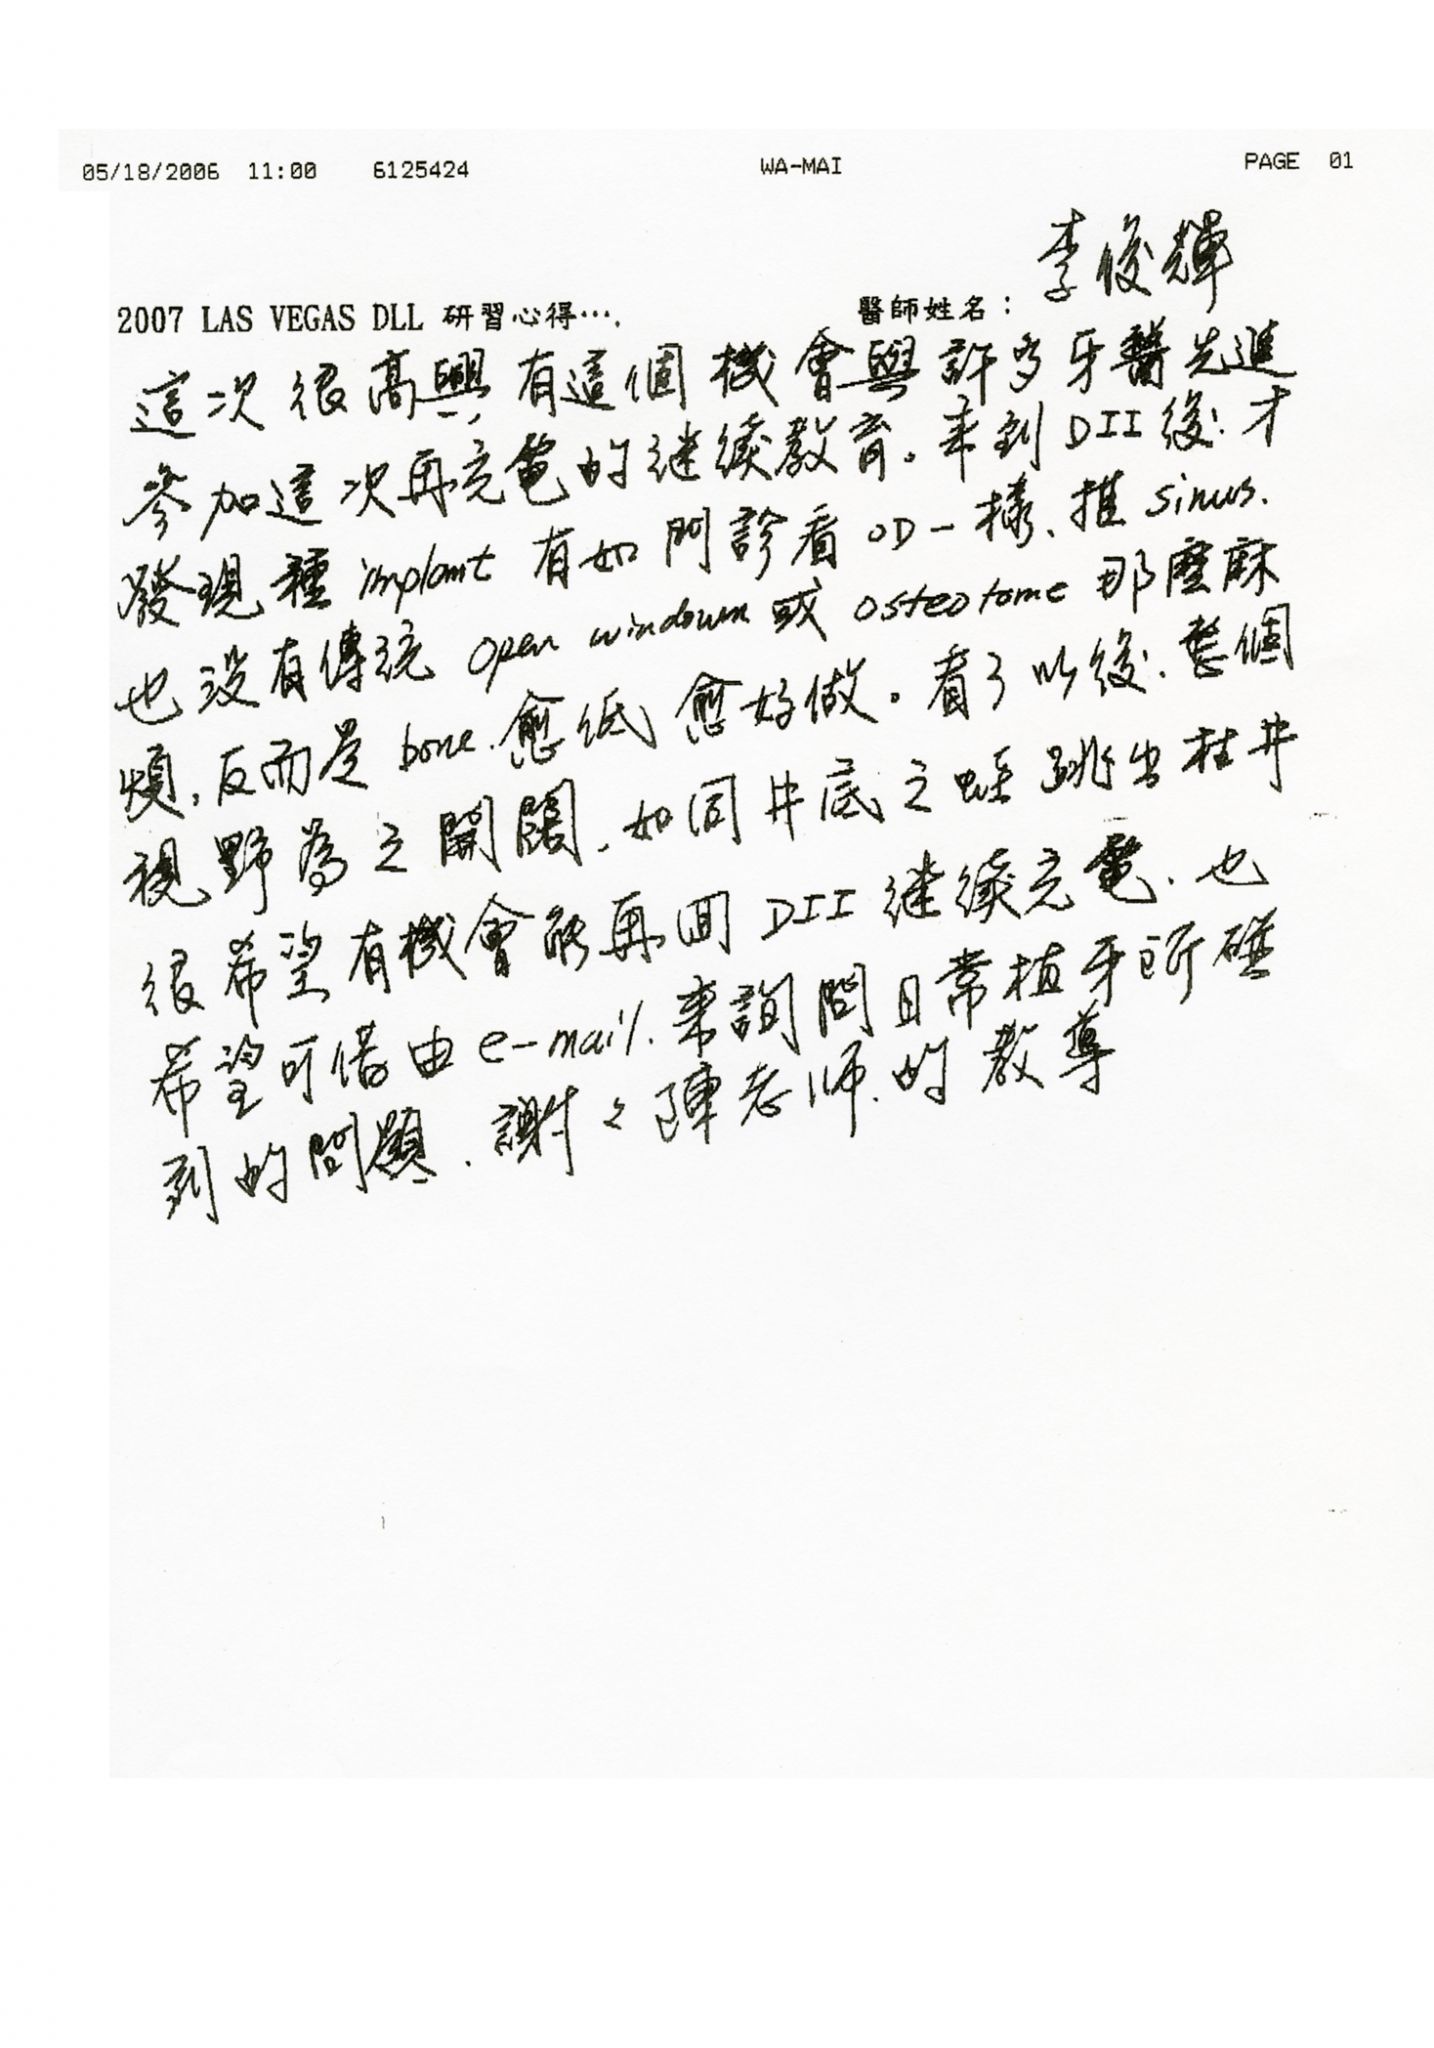 05/18/2006 11:00 6125424 WA-MAI PAGE 01
李俊輝
2007 LAS VEGAS DLL 研習心得…. 醫師姓名：
這次很高興有這個機會與許多牙醫先進
參加這次再充電的继续教育。來到DII後.才
發現種implant有如門診看OD一樣、推sinus.
也沒有傳統open window或osteotome那麼麻
煩，反而是bone.愈低愈好做。看了以後.整個
視野為之開闊、如同井底之蛙跳出枯井
很希望有機會能再回DII继续充電.也
希望可借由e-mail.來詢問日常植牙所碰
到的問題.謝々陳老師.的教導